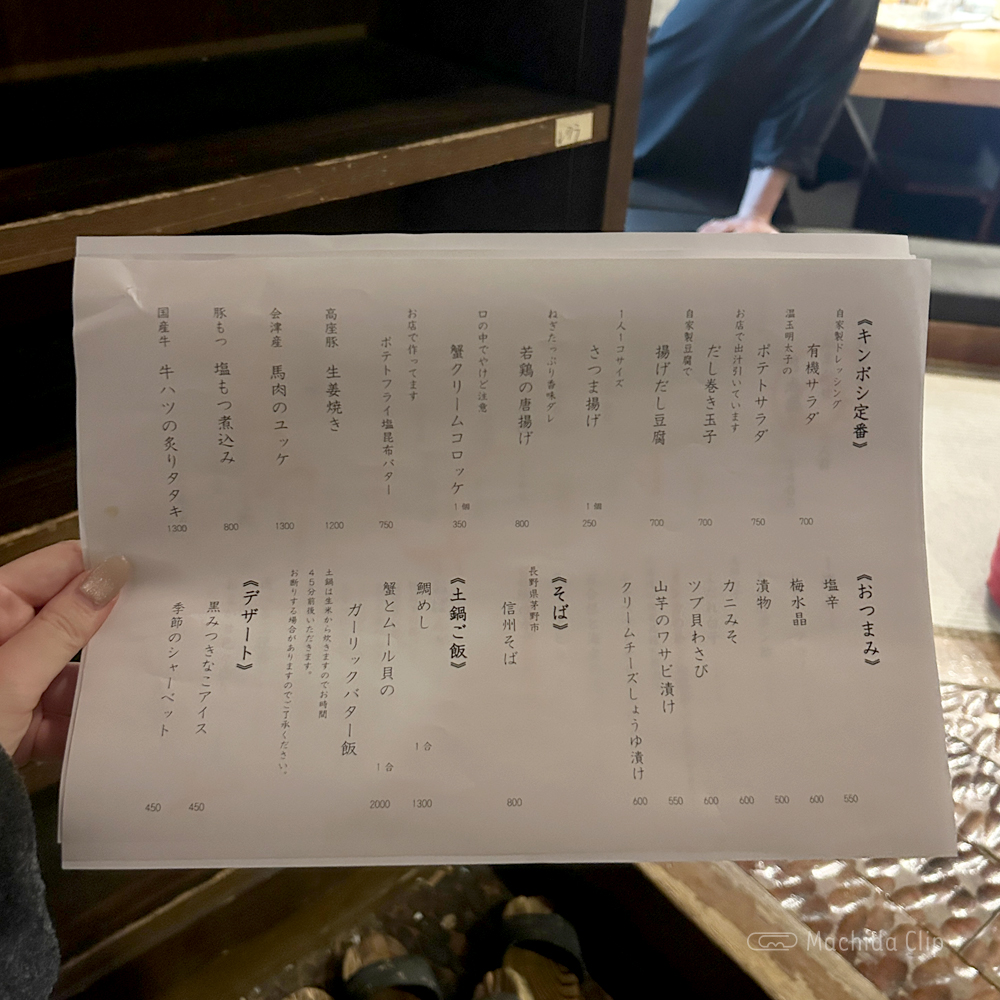 《キンボシ定番》
自家製ドレッシング
有機サラダ
700
温玉明太子の
ポテトサラダ
750
お店で出汁引いています
だし巻き玉子
700
自家製豆腐で
揚げだし豆腐
700
1人1コサイズ
さつま揚げ
1個
250
ねぎたっぷり香味ダレ
若鶏の唐揚げ
800
口の中でやけど注意
蟹クリームコロッケ
1個
350
お店で作ってます
ポテトフライ塩昆布バター
750
高座豚 生姜焼き
1200
会津産 馬肉のユッケ
1300
豚もつ 塩もつ煮込み
800
国産牛 牛ハツの炙りタタキ
1300
《おつまみ》
塩辛
550
梅水晶
600
漬物
500
カニみそ
600
ツブ貝わさび
600
山芋のワサビ漬け
550
クリームチーズしょうゆ漬け
600
《そば》
長野県茅野市
信州そば
800
《土鍋ご飯》
鯛めし
1合
1300
蟹とムール貝の
ガーリックバター飯
1合
2000
土鍋は生米から炊きますのでお時間
45分前後いただきます。
お断りする場合がありますのでご了承ください。
《デザート》
黒みつきなこアイス
450
季節のシャーベット
450
Machida Clip